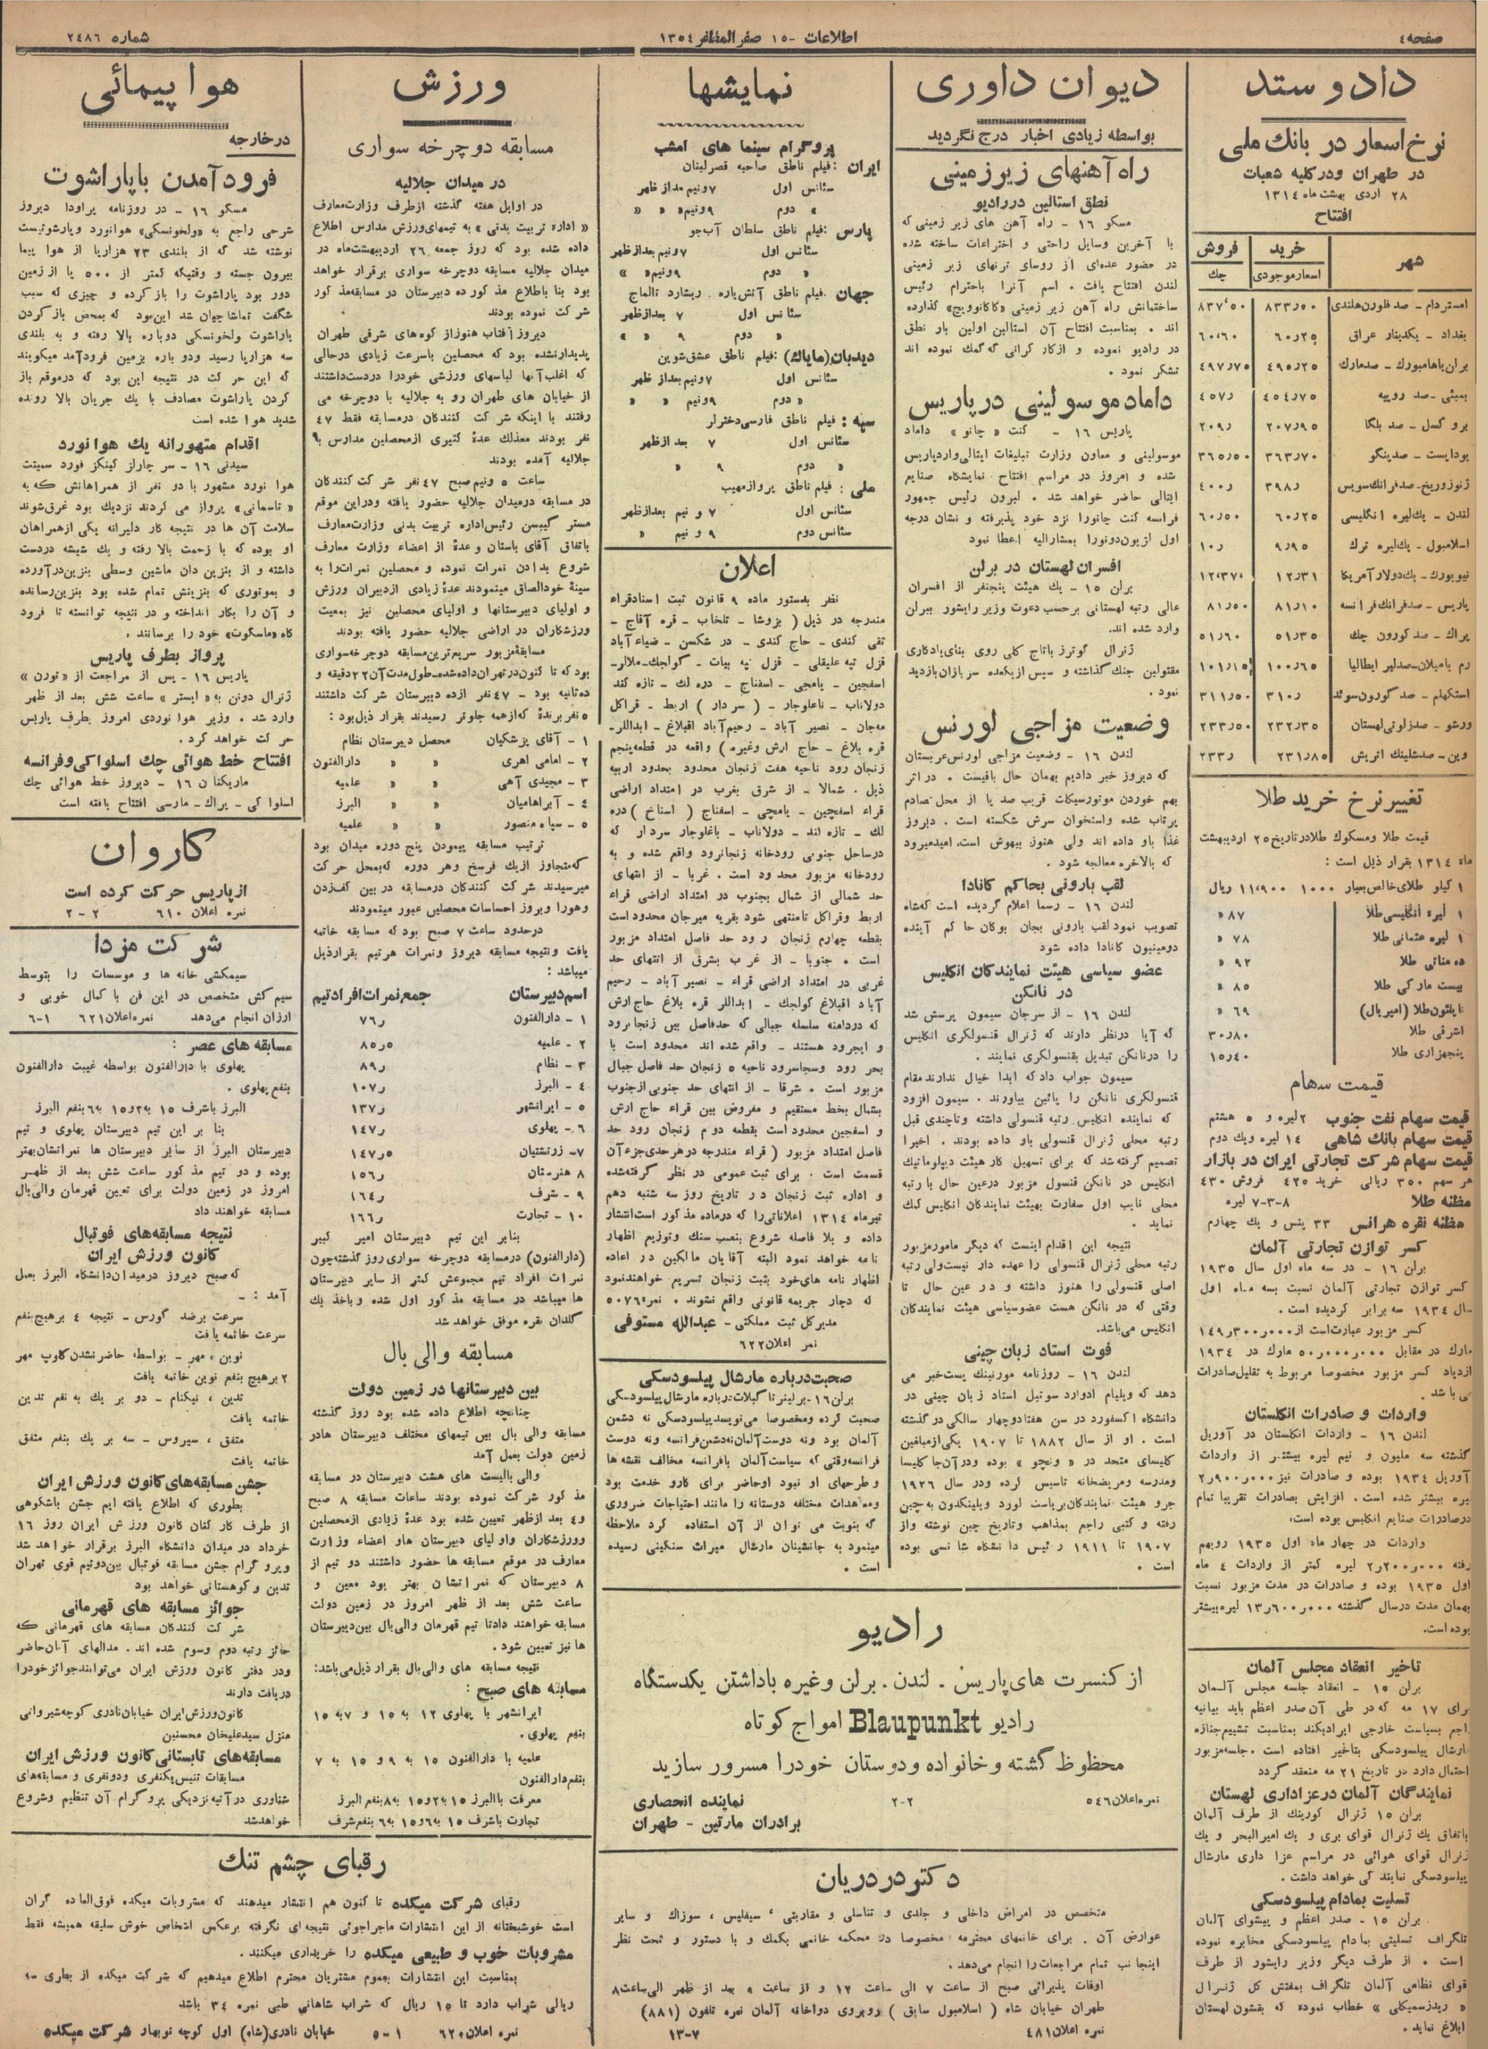 صفحه ٤
اطلاعات - ١٥ صفر المظفر ١٣٥٤
شماره ٢٤٨٦
داد و ستد
نرخ اسعار در بانک ملی
در طهران ودرکلیه شعبات
٢٨ اردی بهشت ماه ١٣١٤
افتتاح
شهر خرید فروش
اسعارموجودی چك
امستردام - صد فلورن هلندی ٨٣٣٫٥٠ ٨٣٧٫٥٠
بغداد - یکدینار عراق ٦٠٫٢٥ ٦٠٫٦٠
برلن یاهامبورك - صدمارك ٤٩٥٫٢٥ ٤٩٧٫٧٥
بمبئی - صد روپیه ٤٥٤٫٧٥ ٤٥٧٫
بروکسل - صد بلگا ٢٠٧٫٩٥ ٢٠٩٫
بوداپست - صدپنگو ٣٦٣٫٧٠ ٣٦٥٫٥٠
ژنوزوریخ - صدفرانك سویس ٣٩٨٫ ٤٠٠٫
لندن - یك لیره انگلیسی ٦٠٫٢٥ ٦٠٫٥٠
اسلامبول - یك لیره ترك ٩٫٩٥ ١٠٫
نیویورك - یك دولار آمریکا ١٢٫٣١ ١٢٫٣٧٠
پاریس - صدفرانك فرانسه ٨١٫١٠ ٨١٫٥٠
پراك - صد کورون چك ٥١٫٣٥ ٥١٫٦٠
رم یامیلان - صدلیر ایطالیا ١٠٠٫٦٥ ١٠١٫١٥
استکهلم - صد کورون سوئد ٣١٠٫ ٣١١٫٥٠
ورشو - صدزلوتی لهستان ٢٣٢٫٣٥ ٢٣٣٫٥٠
وین - صدشلینك اتریش ٢٣١٫٨٥ ٢٣٣٫
تغییر نرخ خرید طلا
قیمت طلا ومسکوك طلادرتاریخ ٢٥ اردیبهشت
ماه ١٣١٤ بقرار ذیل است :
١ کیلو طلای خالص بعیار ١٠٠٠ ١١٫٩٠٠ ریال
١ لیره انگلیسی طلا ٨٧ »
١ لیره عثمانی طلا ٧٨ »
ده مناتی طلا ٩٢ »
بیست مارکی طلا ٨٥ »
ناپلئون طلا (امپریال) ٦٩ »
اشرفی طلا ٣٠٫٨٠
پنجهزاری طلا ١٥٫٤٠
قیمت سهام
قیمت سهام نفت جنوب ٢ لیره و ٥ هشتم
قیمت سهام بانك شاهی ١٤ لیره ویك دوم
قیمت سهام شرکت تجارتی ایران در بازار
هر سهم ٣٥٠ ریالی خرید ٤٢٥ فروش ٤٣٠
مظنه طلا ٨-٣-٧ لیره
مظنه نقره هرانس ٣٣ پنس و یك چهارم
کسر توازن تجارتی آلمان
برلن ١٦ - در سه ماه اول سال ١٩٣٥
کسر توازن تجارتی آلمان نسبت بسه ماه اول
سال ١٩٣٤ سه برابر گردیده است .
کسر مزبور عبارت است از ١٤٩٫٣٠٠٫٠٠٠
مارك در مقابل ٥٠٫٠٠٠٫٠٠٠ مارك در ١٩٣٤
ازدیاد کسر مزبور مخصوصا مربوط به تقلیل صادرات
می باشد .
واردات و صادرات انگلستان
لندن ١٦ - واردات انگلستان در آوریل
گذشته سه ملیون و نیم لیره بیشتر از واردات
آوریل ١٩٣٤ بوده و صادرات نیز ٢٫٩٠٠٫٠٠٠
لیره بیشتر شده است . افزایش بصادرات تقریبا تمام
درصادرات صنایع انگلیس بوده است.
واردات در چهار ماه اول ١٩٣٥ رویهم
رفته ٢٫٢٠٠٫٠٠٠ لیره کمتر از واردات ٤ ماه
اول ١٩٣٥ بوده و صادرات در مدت مزبور نسبت
بهمان مدت درسال گذشته ١٣٫٦٠٠٫٠٠٠ لیره بیشتر
بوده است.
تاخیر انعقاد مجلس آلمان
برلن ١٥ - انعقاد جلسه مجلس آلمان
برای ١٧ مه که در طی آن صدر اعظم باید بیانیه
راجم بسیاست خارجی ایرادبکند بمناسبت تشییع جنازه
مارشال پیلسودسکی بتاخیر افتاده است . جلسه مزبور
احتمال دارد در تاریخ ٢١ مه منعقد گردد
نمایندگان آلمان درعزاداری لهستان
برلن ١٥ ژنرال گورینك از طرف آلمان
باتفاق یك ژنرال قوای بری و یك امیرالبحر و یك
ژنرال قوای هوائی در مراسم عزا داری مارشال
پیلسودسکی نمایندگی خواهد داشت .
تسلیت بمادام پیلسودسکی
برلن ١٥ - صدر اعظم و پیشوای آلمان
تلگراف تسلیتی بمادام پیلسودسکی مخابره نموده
است . از طرف دیگر وزیر رایشور از طرف
قوای نظامی آلمان تلگراف بمفتش کل ژنرال
« ریدزسمیگلی » خطاب نموده که بقشون لهستان
ابلاغ نماید .
دیوان داوری
بواسطه زیادی اخبار درج نگردید
راه آهنهای زیرزمینی
نطق استالین دررادیو
مسکو ١٦ - راه آهن های زیر زمینی که
با آخرین وسایل راحتی و اختراعات ساخته شده
در حضور عده‌ای از روسای ترنهای زیر زمینی
لندن افتتاح یافت . اسم آنرا باحترام رئیس
ساختمانش راه آهن زیر زمینی «کاکانوویچ» گذارده
اند . بمناسبت افتتاح آن استالین اولین بار نطق
در رادیو نموده و ازکار کرانی که کمك نموده اند
تشکر نمود .
داماد موسولینی در پاریس
پاریس ١٦ - کنت « چانو » داماد
موسولینی و معاون وزارت تبلیغات ایتالی واردپاریس
شده و امروز در مراسم افتتاح نمایشگاه صنایع
ایتالی حاضر خواهد شد . لبرون رئیس جمهور
فرانسه کنت چانورا نزد خود پذیرفته و نشان درجه
اول لژیون دونورا بمشارالیه اعطا نمود
افسران لهستان در برلن
برلن ١٥ - یك هیئت پنجنفر از افسران
عالی رتبه لهستانی برحسب دعوت وزیر رایشور ببرلن
وارد شده اند.
ژنرال گوترز باتاج گلی روی بنای یادگاری
مقتولین جنك گذاشته و سپس ازیکعده سربازان بازدید
نمود .
وضعیت مزاجی لورنس
لندن ١٦ - وضعیت مزاجی لورنس عربستان
که دیروز خبر دادیم بهمان حال باقیست . در اثر
بهم خوردن موتورسیکلت قریب صد پا از محل تصادم
پرتاب شده واستخوان سرش شکسته است . دیروز
غذا باو داده اند ولی هنوز بیهوش است. امیدمیرود
که بالاخره معالجه شود .
لقب بارونی بحاکم کانادا
لندن ١٦ - رسما اعلام گردیده است که شاه
تصویب نمود لقب بارونی بجان بوکان حاکم آینده
دومینیون کانادا داده شود
عضو سیاسی هیئت نمایندگان انگلیس
در نانکن
لندن ١٦ - از سرجان سیمون پرسش شد
که آیا درنظر دارند که ژنرال قنسولگری انگلیس
را درنانکن تبدیل بقنسولگری نمایند .
سیمون جواب داد که ابدا خیال ندارند مقام
قنسولگری نانکن را پائین بیاورند . سیمون افزود
که نماینده انگلیس رتبه قنسولی داشته وتاچندی قبل
رتبه محلی ژنرال قنسولی باو داده بودند . اخیرا
تصمیم گرفته شد که برای تسهیل کار هیئت دیپلوماتیك
انگلیس در نانکن قنسول مزبور درعین حال با رتبه
محلی نایب اول سفارت بهیئت نمایندگان انگلیس کمك
نماید .
نتیجه این اقدام اینست که دیگر مامور مزبور
رتبه محلی ژنرال قنسولی را عهده دار نیست ولی رتبه
اصلی قنسولی را هنوز داشته و در عین حال تا
وقتی که در نانکن هست عضو سیاسی هیئت نمایندگان
انگلیس می‌باشد.
فوت استاد زبان چینی
لندن ١٦ - روزنامه مورنینك پست خبر می
دهد که ویلیام ادوارد سوتیل استاد زبان چینی در
دانشگاه اکسفورد در سن هفتادوچهار سالگی درگذشته
است . او از سال ١٨٨٢ تا ١٩٠٧ یکی ازمبلغین
کلیسای متحد در « ونچو » بوده ودرآنجا کلیسا
ومدرسه ومریضخانه تاسیس کرده ودر سال ١٩٢٦
جزو هیئت نمایندگان بریاست لورد ویلینگدون به چین
رفته و کتبی راجع بمذاهب وتاریخ چین نوشته واز
١٩٠٧ تا ١٩١١ رئیس دانشگاه شانسی بوده
است .
نمایشها
پروگرام سینما های امشب
ایران : فیلم ناطق صاحبه قصرلبنان
سئانس اول ٧ ونیم بعداز ظهر
« دوم ٩ ونیم « «
پارس : فیلم ناطق سلطان آب جو
سئانس اول ٧ ونیم بعدازظهر
« دوم ٩ ونیم « «
جهان . فیلم ناطق آتش‌پاره . ریشارد تالماج
سئانس اول ٧ بعدازظهر
« دوم ٩ « «
دیدبان (مایاك) : فیلم ناطق عشق شوپن
سئانس اول ٧ ونیم بعداز ظهر
« دوم ٩ ونیم « «
سپه : فیلم ناطق فارسی دخترلر
سئانس اول ٧ بعد ازظهر
« دوم ٩ «
ملی : فیلم ناطق پروازمهیب
سئانس اول ٧ و نیم بعدازظهر
سئانس دوم ٩ و نیم «
اعلان
نظر بدستور ماده ٩ قانون ثبت اسناد قراء
مندرجه در ذیل ( بزوشا - تلخاب - قره آقاج -
تقی کندی - حاج کندی - در شکسن - ضیاء آباد
قزل تپه علیقلی - قزل تپه بیات - گواجك - ملالر-
اسفجین - یامچی - اسفناج - دره لك - تازه کند
دولاناب - باغلوجار - ( سردار ) اربط - قراکل
مهجان - نصیر آباد - رحیم آباد اقبلاغ - ابداللر-
قره بلاغ - حاج ارش وغیره ) واقعه در قطعه پنجم
زنجان رود ناحیه هفت زنجان محدود بحدود اربیه
ذیل . شمالا - از شرق بغرب در امتداد اراضی
قراء اسفجین - یامچی - اسفناج ( اسناخ ) دره
لك - تازه اند - دولاناب - باغلوجار سردار که
درساحل جنوبی رودخانه زنجانرود واقع شده و به
رودخانه مزبور محدود است . غربا - از انتهای
حد شمالی از شمال بجنوب در امتداد اراضی قراء
اربط وقراکل تامنتهی شود بقریه میرجان محدود است
بقطعه چهارم زنجان رود حد فاصل امتداد مزبور
است . جنوبا - از غرب بشرق از انتهای حد
غربی در امتداد اراضی قراء - نصیر آباد - رحیم
آباد اقبلاغ کولجك - ابداللر قره بلاغ حاج ارش
که دردامنه سلسله جبالی که حدفاصل بین زنجانرود
و ایجرود هستند - واقع شده اند محدود است با
بحر رود وسجاسرود ناحیه ٥ زنجان حد فاصل جبال
مزبور است . شرقا - از انتهای حد جنوبی ازجنوب
بشمال بخط مستقیم و مفروض بین قراء حاج ارش
و اسفجین محدود است بقطعه دوم زنجان رود حد
فاصل امتداد مزبور ( قراء مندرجه دوهرحدی جزءآن
قسمت است . برای ثبت عمومی در نظر گرفته شده
و اداره ثبت زنجان در تاریخ روز سه شنبه دهم
تیرماه ١٣١٤ اعلاناتی را که درماده مذکور است انتشار
داده و بلا فاصله شروع بنصب سنك وتوزیع اظهار
نامه خواهد نمود البته آقایان مالکین در اعاده
اظهار نامه های خود بثبت زنجان تسریم خواهندنمود
که دچار جریمه قانونی واقع نشوند . نمره ٥٠٧٦
مدیرکل ثبت مملکتی - عبدالله مستوفی
نمره اعلان ٦٢٢
صحبت درباره مارشال پیلسودسکی
برلن ١٦- برلینرتاگبلات درباره مارشال پیلسودسکی
صحبت کرده ومخصوصا می نویسد پیلسودسکی نه دشمن
آلمان بود ونه دوست آلمان نه دشمن فرانسه ونه دوست
فرانسه وقتی که سیاست آلمان بافرانسه مخالف نقشه ها
و طرحهای او نبود اوحاضر برای کارو خدمت بود
ومعاهدات مختلفه دوستانه را مانند احتیاجات ضروری
که بنوبت می توان از آن استفاده کرد ملاحظه
مینمود به جانشینان مارشال میراث سنگینی رسیده
است .
رادیو
از کنسرت های پاریس - لندن . برلن وغیره باداشتن یکدستگاه
رادیو Blaupunkt امواج کوتاه
محظوظ گشته و خانواده و دوستان خودرا مسرور سازید
نمره اعلان ٥٤٦ ٢-٢ نماینده انحصاری
برادران مارتین - طهران
دکتر دردریان
متخصص در امراض داخلی و جلدی و تناسلی و مقاربتی ، سیفلیس ، سوزاك و سایر
عوارض آن . برای خانمهای محترمه مخصوصا در محکمه خانمی بکمك و با دستور و تحت نظر
اینجانب تمام مراجعات را انجام می‌دهد .
اوقات پذیرائی صبح از ساعت ٧ الی ساعت ١٢ و از ساعت ٢ بعد از ظهر الی ساعت ٨
طهران خیابان شاه ( اسلامبول سابق ) روبروی دواخانه آلمان نمره تلفون (٨٨١)
نمره اعلان ٤٨١ ٧-١٣
ورزش
مسابقه دوچرخه سواری
در میدان جلالیه
در اوایل هفته گذشته ازطرف وزارت معارف
« اداره تربیت بدنی » به تیمهای ورزش مدارس اطلاع
داده شده بود که روز جمعه ٢٦ اردیبهشت ماه در
میدان جلالیه مسابقه دوچرخه سواری برقرار خواهد
بود بنا باطلاع مذکور ده دبیرستان در مسابقه مذکور
شرکت نموده بودند
دیروز آفتاب هنوزاز کوه های شرقی طهران
پدیدارنشده بود که محصلین باسرعت زیادی درحالی
که اغلب آنها لباسهای ورزشی خودرا دردست داشتند
از خیابان های طهران رو به جلالیه با دوچرخه می
رفتند با اینکه شرکت کنندگان درمسابقه فقط ٤٧
نفر بودند معذلك عدۀ کثیری ازمحصلین مدارس به
جلالیه آمده بودند
ساعت ٥ ونیم صبح ٤٧ نفر شرکت کنندگان
در مسابقه درمیدان جلالیه حضور یافته ودراین موقع
مستر گیبسن رئیس اداره تربیت بدنی وزارت معارف
باتفاق آقای باستان و عدۀ از اعضاء وزارت معارف
شروع بدادن نمرات نموده و محصلین نمرات را به
سینۀ خودالصاق مینمودند عدۀ زیادی ازدبیران ورزش
و اولیای دبیرستانها و اولیای محصلین نیز بمعیت
ورزشکاران در اراضی جلالیه حضور یافته بودند
مسابقۀ مزبور سریع ترین مسابقه دوچرخه سواری
بود که تا کنون درتهران داده شده - طول مدت آن ٢٢ دقیقه و
ده ثانیه بود - ٤٧ نفر ازده دبیرستان شرکت داشتند
٥ نفر برندۀ که ازهمه جلوتر رسیدند بقرار ذیل بود :
١ - آقای پزشکیان محصل دبیرستان نظام
٢ - امامی اهری « « دارالفنون
٣ - مجیدی آهی « « علمیه
٤ - آبراهامیان « « البرز
٥ - سیاه منصور « « علمیه
ترتیب مسابقه پیمودن پنج دوره میدان بود
که متجاوز ازیك فرسخ وهر دوره که بمحل حرکت
میرسیدند شرکت کنندگان درمسابقه در بین کف زدن
وهورا وبروز احساسات محصلین عبور مینمودند
درحدود ساعت ٧ صبح بود که مسابقه خاتمه
یافت ونتیجه مسابقه دیروز ونمرات هرتیم بقرارذیل
میباشد :
اسم دبیرستان جمع نمرات افراد تیم
١ - دارالفنون ٧٦٫
٢ - علمیه ٨٥٫٥
٣ - نظام ٨٩٫
٤ - البرز ١٠٧٫
٥ - ایرانشهر ١٣٧٫
٦ - پهلوی ١٤٧٫
٧ - زرتشتیان ١٤٧٫٥
٨ هنرستان ١٥٦٫
٩ - شرف ١٦٤٫
١٠ - تجارت ١٦٦٫
بنابر این تیم دبیرستان امیر کبیر
(دارالفنون) درمسابقه دوچرخه سواری روز گذشته چون
نمرات افراد تیم مجموعش کمتر از سایر دبیرستان
ها میباشد در مسابقه مذکور اول شده و باخذ یك
گلدان نقره موفق خواهد شد
مسابقه والی بال
بین دبیرستانها در زمین دولت
چنانچه اطلاع داده شده بود روز گذشته
مسابقه والی بال بین تیمهای مختلف دبیرستان هادر
زمین دولت بعمل آمد
والی بالیست های هشت دبیرستان در مسابقه
مذکور شرکت نموده بودند ساعات مسابقه ٨ صبح
و٤ بعد ازظهر تعیین شده بود عدۀ زیادی ازمحصلین
وورزشکاران واولیای دبیرستان هاو اعضاء وزارت
معارف در موقع مسابقه ها حضور داشتند دو تیم از
٨ دبیرستان که نمراتشان بهتر بود معین و
ساعت شش بعد از ظهر امروز در زمین دولت
مسابقه خواهند دادتا تیم قهرمان والی بال بین دبیرستان
ها نیز تعیین شود .
نتیجه مسابقه های والی بال بقرار ذیل می‌باشد:
مسابقه های صبح :
ایرانشهر با پهلوی ١٢ به ١٥ و ٧ به ١٥
بنفع پهلوی.
علمیه با دارالفنون ١٥ به ٩ و ١٥ به ٧
بنفع دارالفنون
معرفت باالبرز ١٥ به ٢ و ١٥ به ٨ بنفع البرز
تجارت باشرف ١٥ به ٦ و ١٥ به ٦ بنفع شرف
هوا پیمائی
درخارجه
فرود آمدن با پاراشوت
مسکو ١٦ - در روزنامه پراودا دیروز
شرحی راجع به «ولخونسکی» هوانورد و پارشوتیست
نوشته شد که از بلندی ٢٣ هزار پا از هوا پیما
بیرون جسته و وقتیکه کمتر از ٥٠٠ پا از زمین
دور بود پاراشوت را باز کرده و چیزی که سبب
شگفت تماشاچیان شد این بود که بمحض باز کردن
پاراشوت ولخونسکی دوباره بالا رفته و به بلندی
سه هزار پا رسید ودو باره بزمین فرودآمد میگویند
که این حرکت در نتیجه این بود که درموقع باز
کردن پاراشوت مصادف با یك جریان بالا رونده
شدید هوا شده است
اقدام متهورانه یك هوا نورد
سیدنی ١٦ - سر چارلز کینگز فورد سمیث
هوا نورد مشهور با دو نفر از همراهانش که به
« تاسمانی » پرواز می کردند نزدیك بود غرق شوند
سلامت آن ها در نتیجه کار دلیرانه یکی ازهمراهان
او بوده که با زحمت بالا رفته و یك شیشه دردست
داشته و از بنزین دان ماشین وسطی بنزین درآورده
و بموتوری که بنزینش تمام شده بود بنزین رسانده
و آن را بکار انداخته و در نتیجه توانسته تا فرود
گاه «ماسکوت» خود را برسانند .
پرواز بطرف پاریس
پاریس ١٦ - پس از مراجعت از « تورن »
ژنرال دونن به « ایستر » ساعت شش بعد از ظهر
وارد شد . وزیر هوا نوردی امروز بطرف پاریس
حرکت خواهد کرد .
افتتاح خط هوائی چك اسلواکی و فرانسه
ماریگنان ١٦ - دیروز خط هوائی چك
اسلواکی - پراك - مارسی افتتاح یافته است
کاروان
از پاریس حرکت کرده است
نمره اعلان ٦١٠ ٢-٢
شرکت مزدا
سیمکشی خانه ها و موسسات را بتوسط
سیم کش متخصص در این فن با کمال خوبی و
ارزان انجام می‌دهد نمره اعلان ٦٢١ ١-٦
مسابقه های عصر :
پهلوی با دارالفنون بواسطه غیبت دارالفنون
بنفع پهلوی .
البرز باشرف ١٥ به ٢ و ١٥ به ٦ بنفع البرز
بنا بر این تیم دبیرستان پهلوی و تیم
دبیرستان البرز از سایر دبیرستان ها نمراتشان بهتر
بوده و دو تیم مذکور ساعت شش بعد از ظهر
امروز در زمین دولت برای تعیین قهرمان والی بال
مسابقه خواهند داد
نتیجه مسابقه‌های فوتبال
کانون ورزش ایران
که صبح دیروز درمیدان دانشگاه البرز بعمل
آمد : -
سرعت برضد گورس - نتیجه ٤ برهیچ بنفع
سرعت خاتمه یافت
نوین ، مهر - بواسطه حاضر نشدن کاوپ مهر
٢ برهیچ بنفع نوین خاتمه یافت
تدین ، نیکنام - دو بر یك به نفع تدین
خاتمه یافت
متفق ، سیروس - سه بر یك بنفع متفق
خاتمه یافت
جشن مسابقه های کانون ورزش ایران
بطوری که اطلاع یافته ایم جشن باشکوهی
از طرف کار کنان کانون ورزش ایران روز ١٦
خرداد در میدان دانشگاه البرز برقرار خواهد شد
وپروگرام جشن مسابقه فوتبال بین دوتیم قوی تهران
تدین و کوهستانی خواهد بود
جوائز مسابقه های قهرمانی
شرکت کنندگان مسابقه های قهرمانی که
حائز رتبه دوم وسوم شده اند . مدالهای آنان حاضر
ودر دفتر کانون ورزش ایران می‌توانند جوائز خودرا
دریافت دارند
کانون ورزش ایران خیابان نادری کوچه شیروانی
منزل سیدعلیخان محسنین
مسابقه‌های تابستانی کانون ورزش ایران
مسابقات تنیس یکنفری ودونفری و مسابقه‌های
شناوری درآتیه نزدیکی پروگرام آن تنظیم وشروع
خواهدشد
رقبای چشم تنك
رقبای شرکت میکده تا کنون هم انتشار میدهند که مشروبات میکده فوق العاده گران
است خوشبختانه از این انتشارات ماجراجوئی نتیجه‌ای نگرفته برعکس اشخاص خوش سلیقه همیشه فقط
مشروبات خوب و طبیعی میکده را خریداری میکنند .
بمناسبت این انتشارات بعموم مشتریان محترم اطلاع میدهیم که شرکت میکده از بطری
ریالی شراب دارد تا ١٥ ریال که شراب شاهانی طبی نمره ٣٤ باشد
نمره اعلان ٦٢٠ ١-٥ خیابان نادری (شاه) اول کوچه نوبهار شرکت میکده